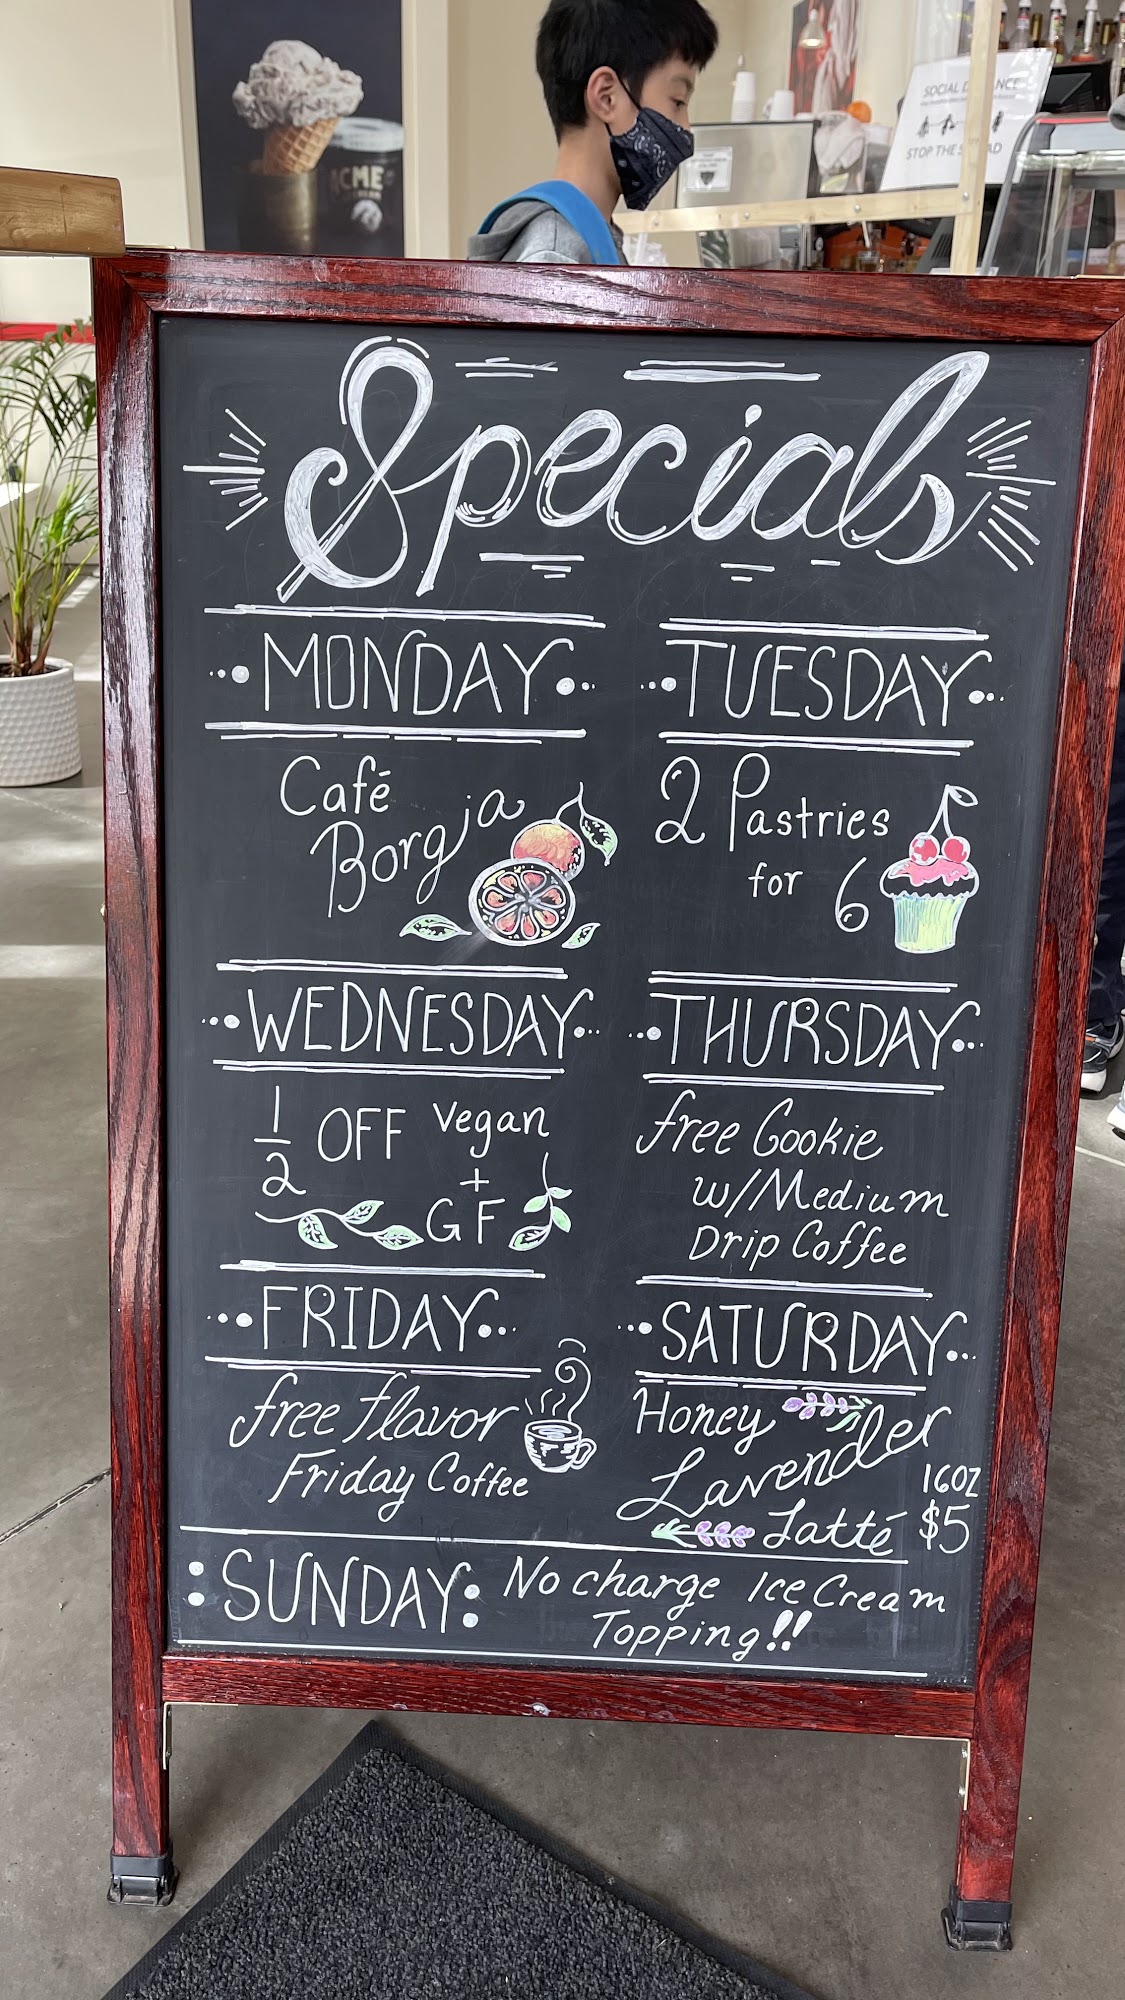 ACME
SOCIAL DISTANCE
STOP THE SPREAD
Specials
MONDAY
Café
Borgia
TUESDAY
2 Pastries
for 6
WEDNESDAY
1/2 OFF vegan
+
GF
THURSDAY
free Cookie
w/Medium
Drip Coffee
FRIDAY
free flavor
Friday Coffee
SATURDAY
Honey
Lavender
Latté
16OZ
$5
SUNDAY
No charge Ice Cream
Topping!!